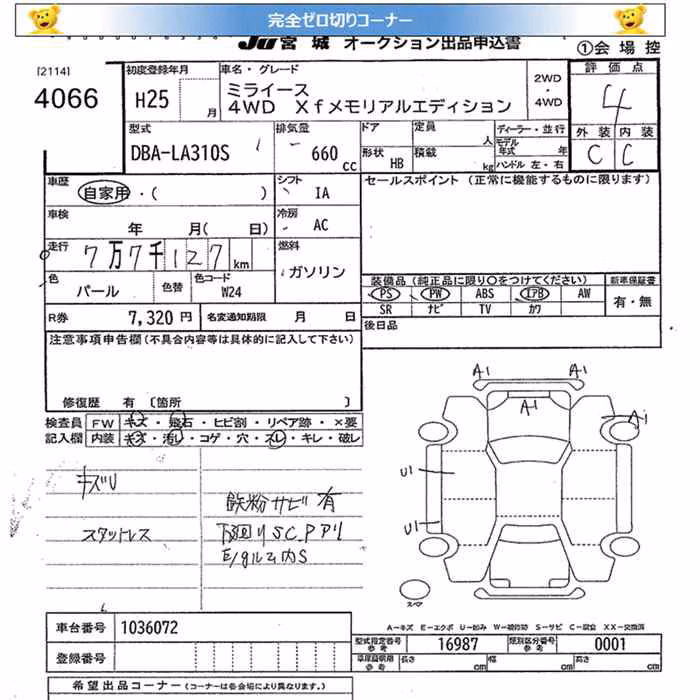 完全ゼロ切りコーナー
JU 宮城 オークション出品申込書
①会場控
[2114]
4066
初度登録年月
H25 月
車名・グレード
ミライース
4WD Xfメモリアルエディション
2WD
・
4WD
評価点
4
外装 内装
C C
型式
DBA-LA310S
排気量
660 cc
ドア
形状 HB
定員 人
積載 kg
ディーラー・並行
モデル年式 年
ハンドル 左・右
車歴
自家用・( )
シフト
IA
セールスポイント (正常に機能するものに限ります)
車検
年 月( 日)
冷房
AC
走行
7万7千127 km
燃料
ガソリン
色
パール
色替
色コード
W24
装備品 (純正品に限り〇をつけてください)
新車保証書
PS PW ABS エアB AW
SR ナビ TV カワ
有・無
R券 7,320 円
名変通知期限 月 日
後日品
注意事項申告欄 (不具合内容等は具体的に記入して下さい)
修復歴 有 [箇所 ]
検査員記入欄
FW キズ・飛石・ヒビ割・リペア跡・×要
内装 キズ・汚レ・コゲ・穴・スレ・キレ・破レ
キズU
スタットレス
鉄粉サビ有
下回りSC.Pアリ
A1 A1
A1
A1
U1
U1
スペア
A-キズ E-エクボ U-凹み W-補修跡 S-サビ C-腐食 XX-交換済
車台番号 1036072
登録番号
型式指定番号 参考 16987
類別区分番号 参考 0001
長さ cm 幅 cm 高さ cm
希望出品コーナー (コーナーは各会場により異なります。)